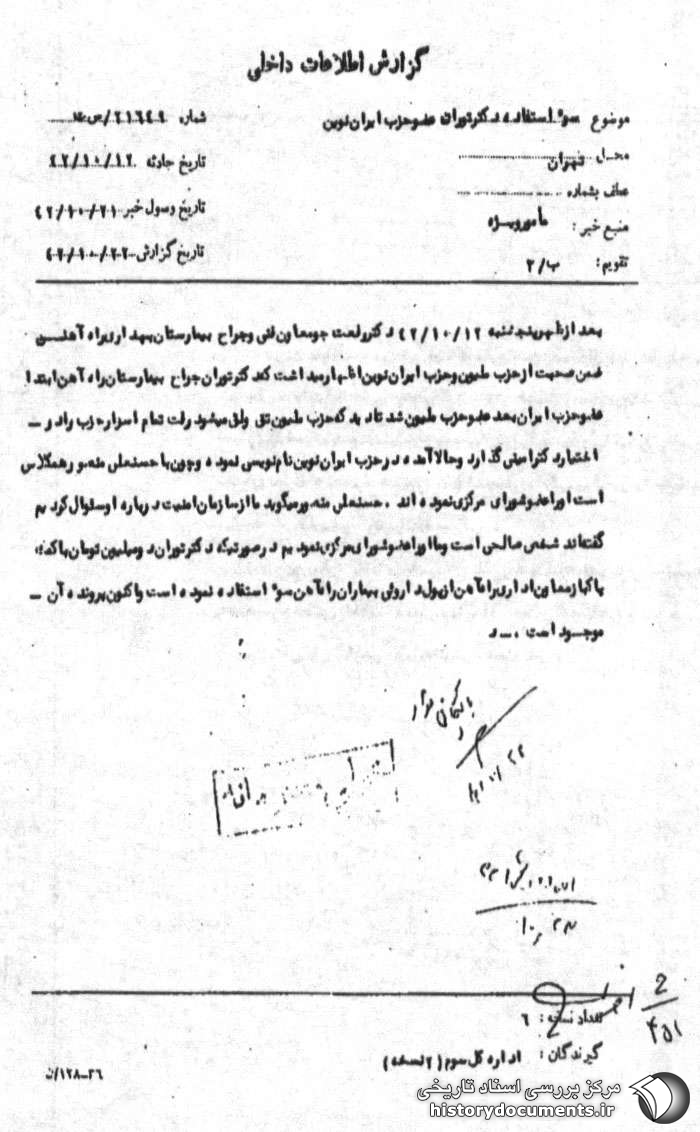 گزارش اطلاعات داخلی
موضوع سوء استفاده دکتر توران عضو حزب ایران نوین
شماره 21649/س ت
محل تهران
تاریخ حادثه 42/10/12
عطف بشماره
تاریخ وصول خبر 42/10/21
منبع خبر: مأمور ویژه
تاریخ گزارش 42/10/22
تقویم: ب/2
بعد از ظهر پنجشنبه 42/10/12 دکتر رفعت جو معاون فنی و جراح بیمارستان بهداری راه آهن
ضمن صحبت از حزب ملیون و حزب ایران نوین اظهار میداشت که دکتر توران جراح بیمارستان راه آهن ابتدا
عضو حزب ایران بعد عضو حزب ملیون شد تا دید که حزب ملیون تق ولق میشود رفت تمام اسرار حزب را در –
اختیار دکتر امینی گذارد و حالا آمده در حزب ایران نوین نام نویسی نموده و چون با حسنعلی منصور همکلاس
است او را عضو شورای مرکزی نموده اند . حسنعلی منصور میگوید ما از سازمان امنیت درباره او سئوال کردیم
گفته‌اند شخص صالحی است و ما او را عضو شورای مرکزی نمودیم در صورتیکه دکتر توران دو میلیون تومان با کمک
یا کباز معاون اداری راه آهن از پول داروئی بیماران راه آهن سوء استفاده نموده است و اکنون پرونده آن –
موجود است . – د
بایگانی شود
2
451
تعداد نسخه : 6
گیرندگان : اداره کل سوم (2 نسخه)
26–128/ن
مرکز بررسی اسناد تاریخی
historydocuments.ir